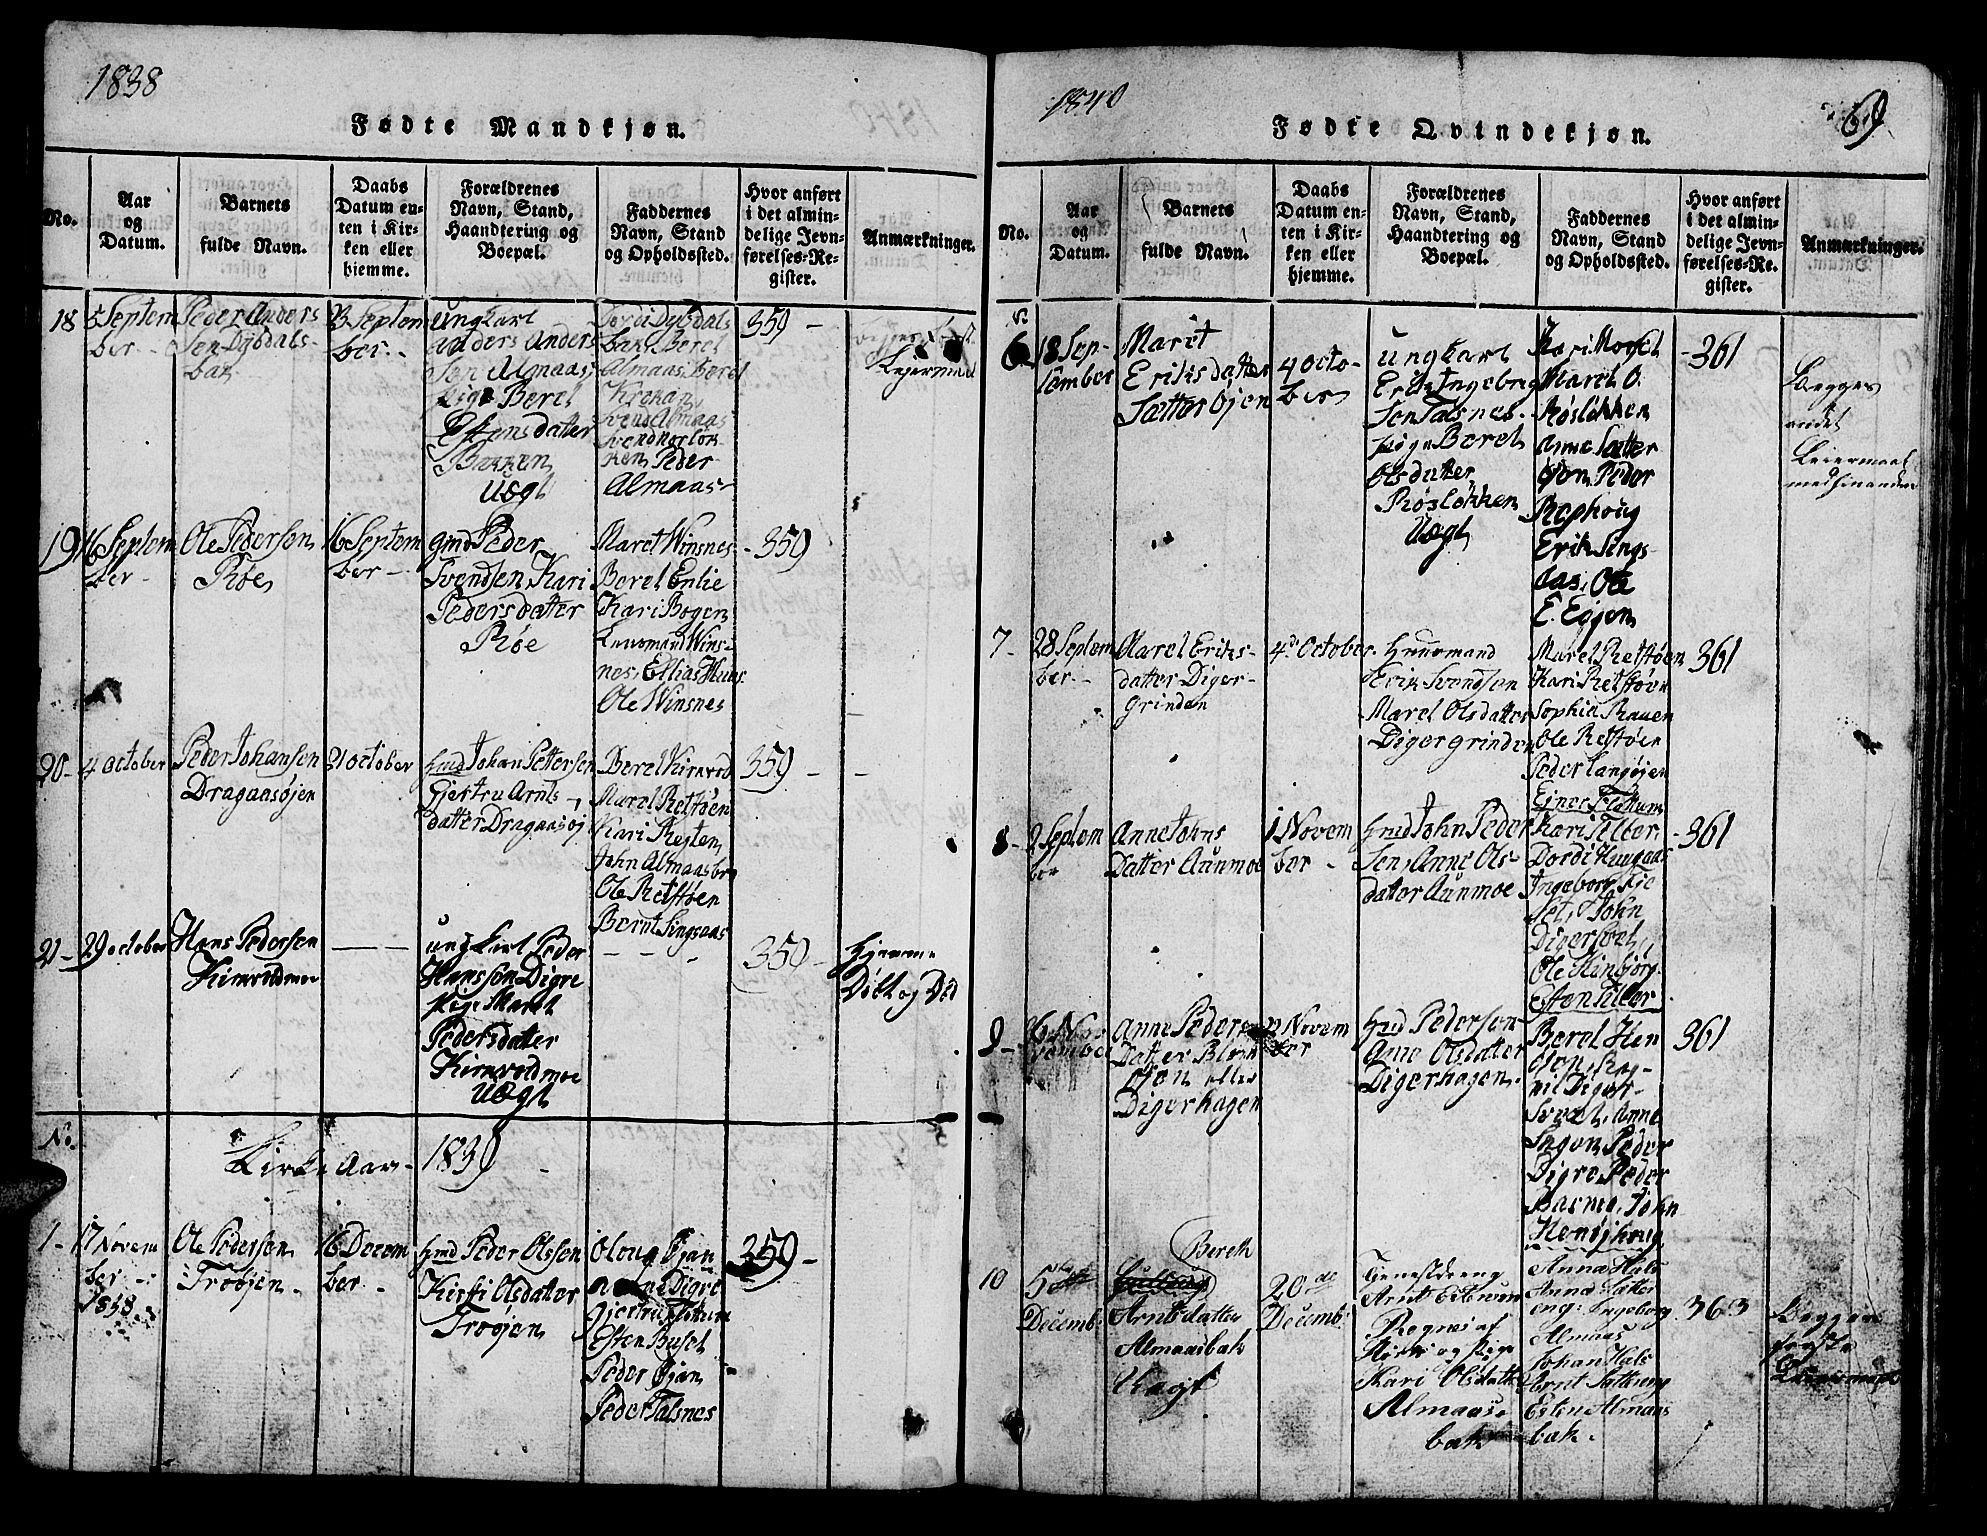 1838
Fødte Mandkjøn.
No.
Aar
og
Datum.
Barnets
fulde Navn.
Daabs
Datum en-
ten i Kir-
ken eller
hjemme.
Forældrenes
Navn, Stand,
Haandtering og
Boepæl.
Faddernes
Navn, Stand
og Opholdssted.
Hvor anført
i det almin-
delige Jevn-
førelses-Re-
gister.
Anmærkninger.
18
5 Septem
ber -
Peder Anders
Sen Dybdals-
bak
23 Septem
ber -
ungkarl
Anders Anders
Sen Almaas,
pige Berel
Estensdatter
Bakken
Uægt
Dordi Dybdals
bak, Berel
Almaas, Berel
Svend Almaas
Svend Norløk
ken, Peder
Almaas-
359 -
Leiermaal
19
16 Septem
ber -
Ole Pedersen
Røe
16 Septem
ber -
gmd Peder
Svendsen, Kari
Pedersdatter
Røe
Maret Winsnes
Berel Enlie
Kari Bogen
Lensmand Wins-
nes, Ellias Huus
Ole Winsnes
- 359
20 -
4 October
Peder Johansen
Dragaasøjen
21 October
hmd Johan Pettersen
Gjertru Arnts-
datter Dragaasøj
Berel Kirkvold
Marel Retstøen
Kari Resten
John Almaasbre
Ole Retstøen
Bernt Singsaas
359 -
21 -
29 october
Hans Pedersen
Kirkvoldmoe
ungkarl Peder
Hansson Digre
Pige Maret
Pedersdatter
Kirkvoldmoe
Uægt
- - -
350 -
Hjemme
Døbt og Død
No.
Kirke Aar - 1839 -
1 -
17 Novem
ber -
1838
Ole Pedersen
Trøøjen -
16 Decem
ber -
hmd Peder Olssen
Kirsti Olsdatter
Trøøjen
Oloug Øjan
Digre
Gjertru Flotum
Esten Buset
Peder Øjan
Peder Talsnes
359 -
1840
69
Fødte Qvindekjøn.
No.
Aar
og
Datum.
Barnets
fulde Navn.
Daabs
Datum en-
ten i Kir-
ken eller
hjemme.
Forældrenes
Navn, Stand,
Haandtering og
Boepæl.
Faddernes
Navn, Stand
og Opholdssted.
Hvor anført
i det almin-
delige Jevn-
førelses-Re-
gister.
Anmærkninger.
6
18 Sep-
tember
Maret
Eriksdatter
Sætterøjen
4 octo-
ber
ungkarl
Erik Ingebrigt
Sen Talsnes -
pige Berel
Olsdatter
Røsløkken
Uægt
Kari Moget
Maret O.
Røsløkken
Anne Sætter
øjen, Peder
Ræphoug
Erik Sings-
aas, Ole
E. Egjen
- 361
Begges
andet
Leiermaal
7 -
28 Septem
ber -
Marel Eriks-
datter Diger-
grinden
4de October
Huusmand
Erik Svendsen
Marel Olsdatter
Digergrinden
Marel Retstøen
Kari Retstøen
Sophia Rauen
Ole Retstøen
Peder Langøjen
Ejner Flottum
361
8 -
2 Septem
ber
Anne Johns
Datter Aunmoe
1 Novem
ber -
hmd John Peder
Sen, Anne Ols-
datter Aunmoe
Kari Tiller
Dordi Haugaas
Ingeborg Kje
Set, John
Digersoet
Ole Kinbjørg
Esten Tiller
- 361
9 -
Novembe
Anne Peders
Datter
øjen eller
Digerhagen
Novem
ber
hmd Pedersen
Ane Olsdatter
Digerhagen -
Berel Hen
Digre, Peder
John
361
10
5te
Decembr
Bereth
Arntsdatter
Almaasbak
Uægt
20de
Decembr
Tjenestdreng
Arnt Estensen
af
og Pige
Kari Olsdatter
Almaas-
bak
Anna Hals
Anna Satter
eng: Ingeborg
Almaas
Johan Hals
Arnt Satereng
Esten Almaas
bak.
363
Begges
første
Leiermaal